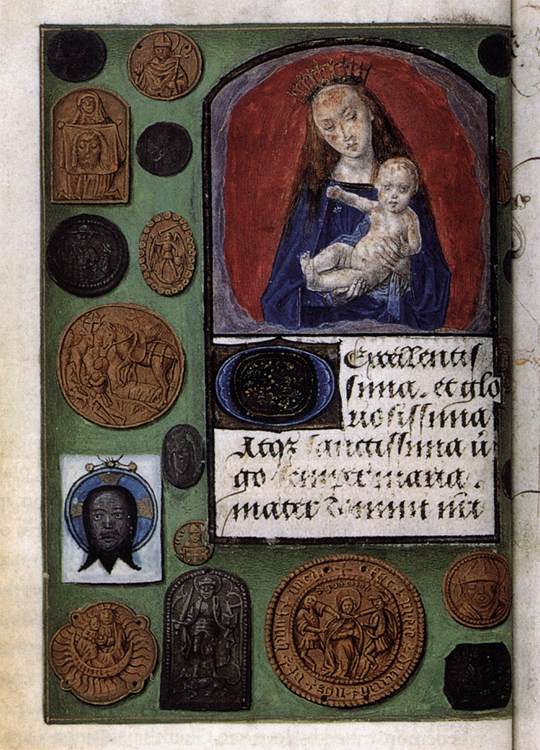 Excellentis
sima. et glo
riosissima
Atqꝫ sanctissima vˀ
go semper maria.
mater domini nr̄i